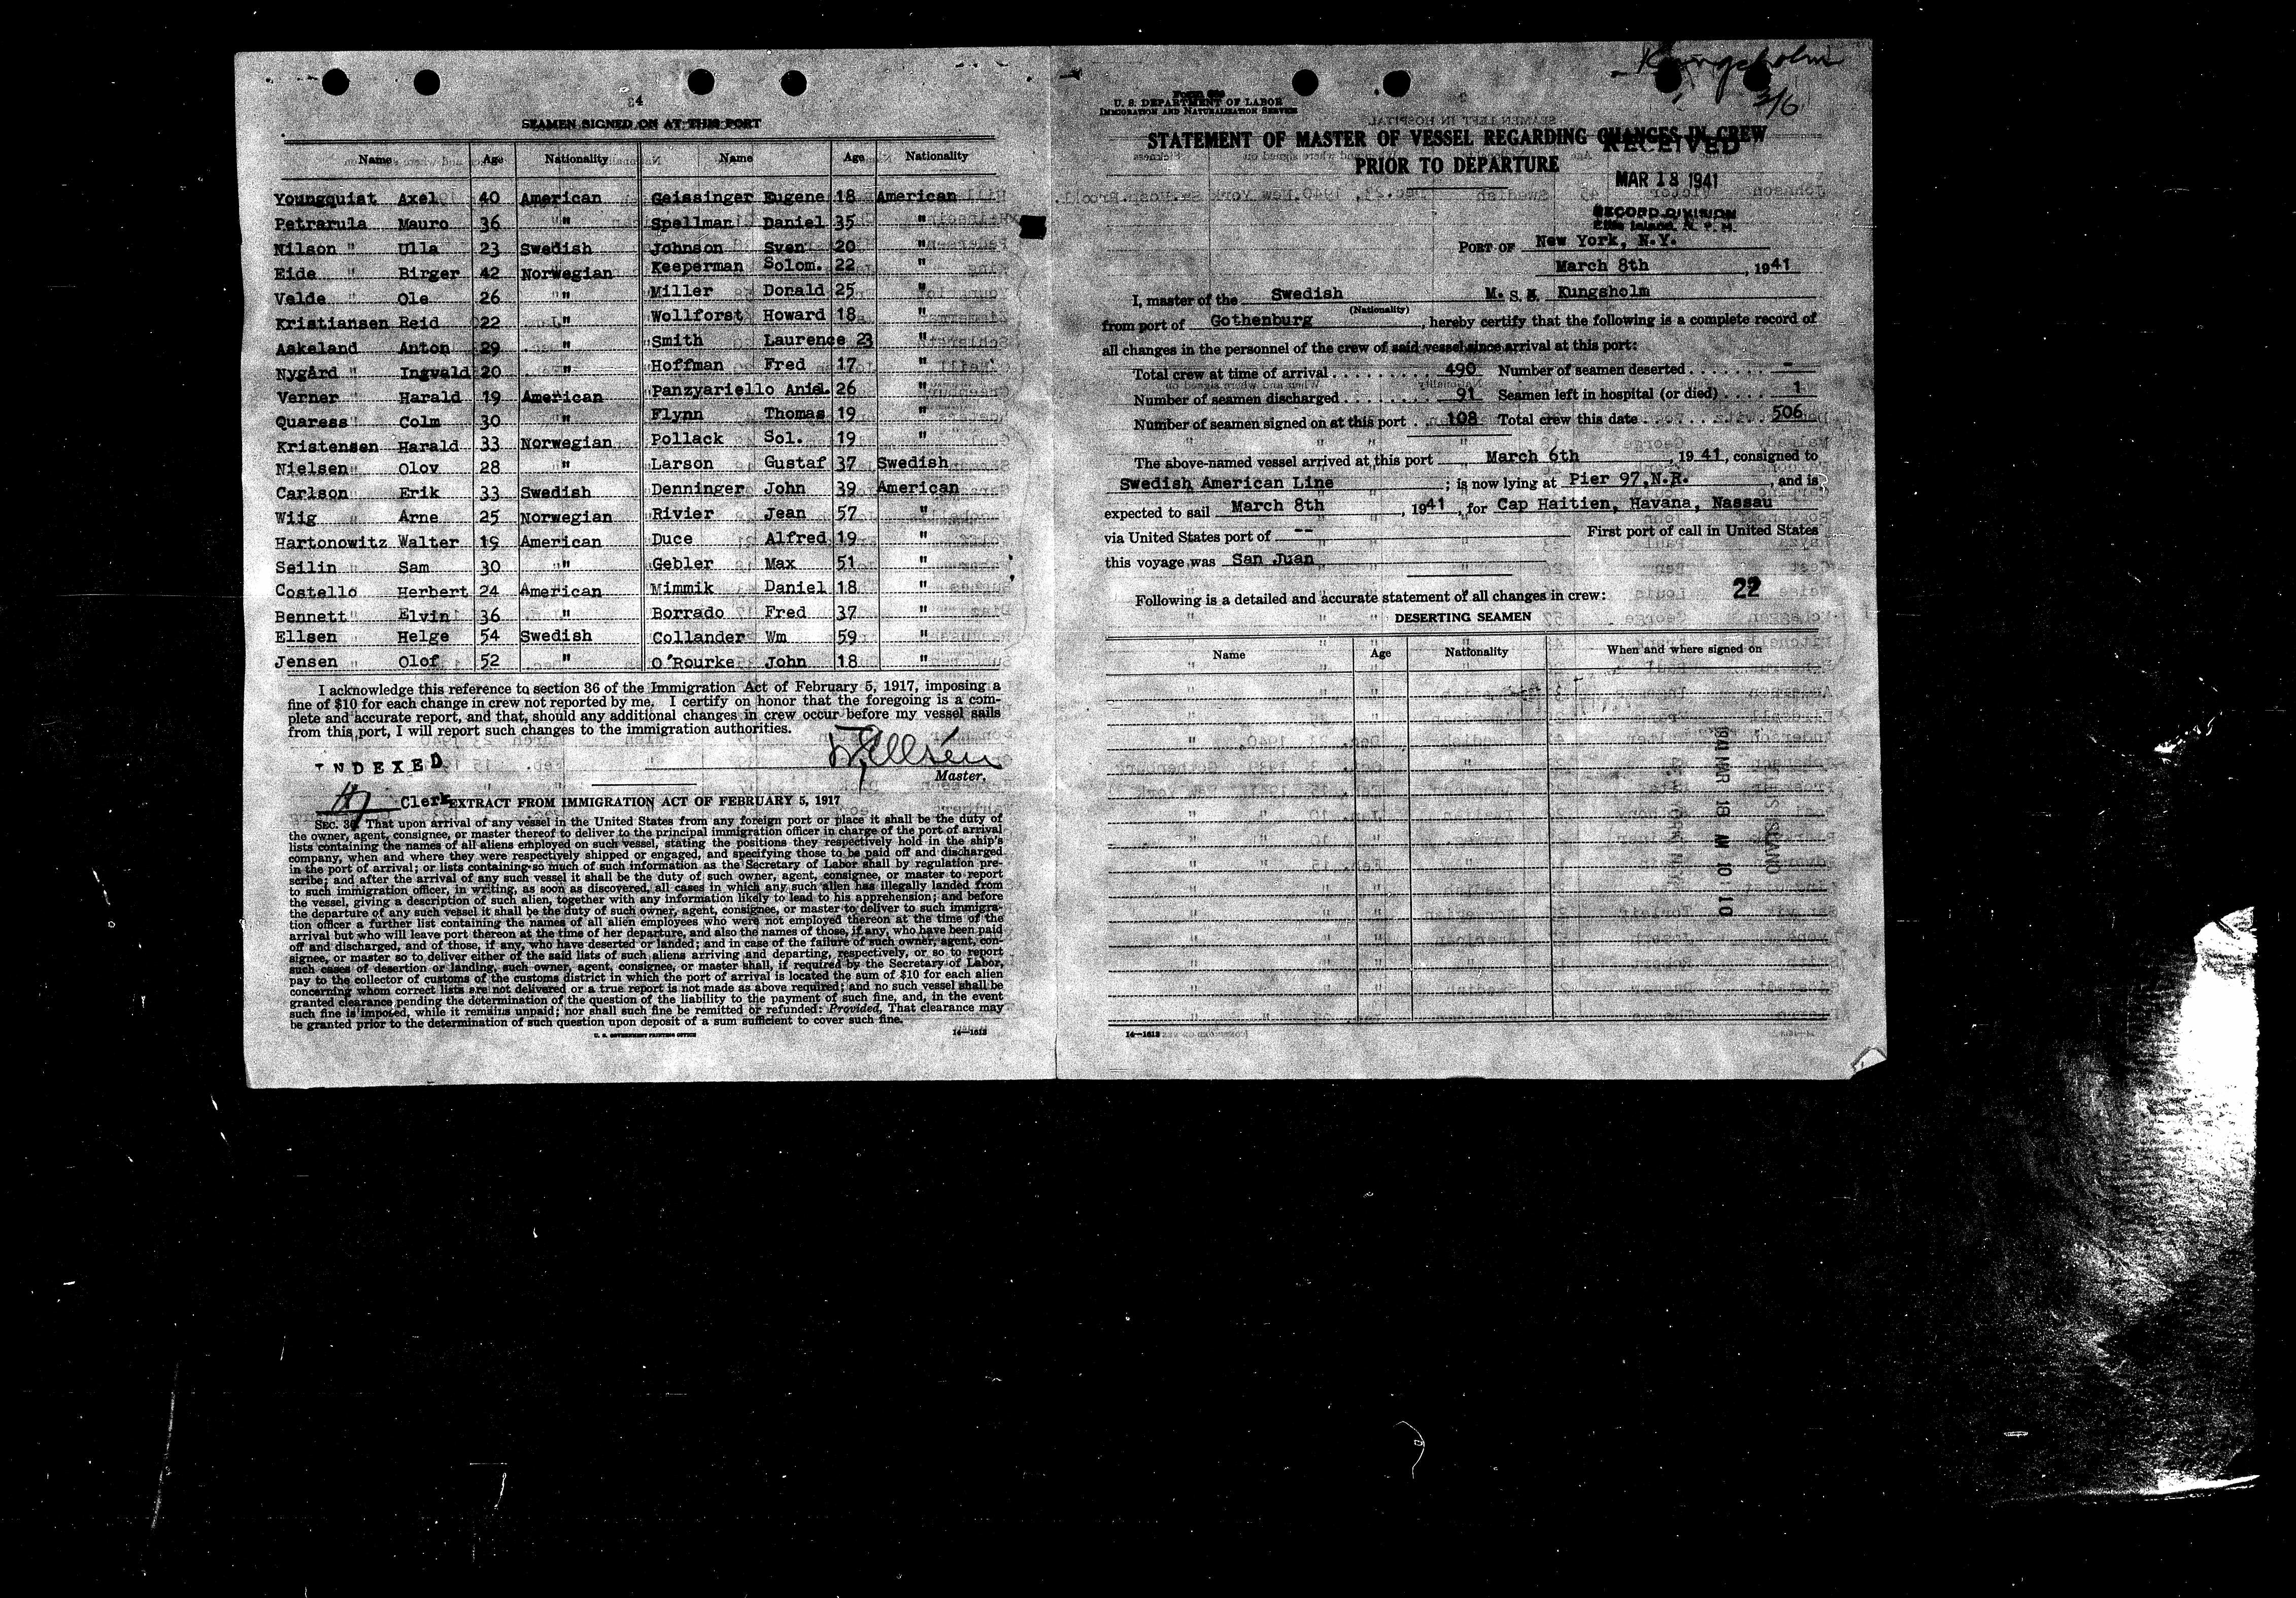 84
SEAMEN SIGNED ON AT THIS PORT
Name Age Nationality Name Age Nationality
Youngquist Axel 40 American Geissinger Eugene 18 American
Petrarula Mauro 36 " Spellman Daniel 35 "
Nilson " Ulla 23 Swedish Johnson Sven 20 "
Eide " Birger 42 Norwegian Keeperman Solom. 22 "
Velde " Ole 26 " Miller Donald 25 "
Kristiansen Reid 22 " Wollforst Howard 18 "
Aakeland Anton 29 " Smith Laurence 23 "
Nygård " Ingvald 20 " Hoffman Fred 17 "
Verner " Harald 19 American Panzyariello Aniel. 26 "
Quaress Colm 30 " Flynn Thomas 19 "
Kristensen Harald 33 Norwegian Pollack Sol. 19 "
Nielsen Olov 28 " Larson Gustaf 37 Swedish
Carlson Erik 33 Swedish Denninger John 39 American
Wiig Arne 25 Norwegian Rivier Jean 57 "
Hartonowitz Walter 19 American Duce Alfred 19 "
Seilin Sam 30 " Gebler Max 51 "
Costello Herbert 24 American Mimmik Daniel 18 "
Bennett Elvin 36 " Borrado Fred 37 "
Ellsen Helge 54 Swedish Collander Wm 59 "
Jensen Olof 52 " O'Rourke John 18 "
I acknowledge this reference to section 36 of the Immigration Act of February 5, 1917, imposing a
fine of $10 for each change in crew not reported by me. I certify on honor that the foregoing is a com-
plete and accurate report, and that, should any additional changes in crew occur before my vessel sails
from this port, I will report such changes to the immigration authorities.
INDEXED
Master.
Clerk
EXTRACT FROM IMMIGRATION ACT OF FEBRUARY 5, 1917
SEC. 36. That upon arrival of any vessel in the United States from any foreign port or place it shall be the duty of
the owner, agent, consignee, or master thereof to deliver to the principal immigration officer in charge of the port of arrival
lists containing the names of all aliens employed on such vessel, stating the positions they respectively hold in the ship's
company, when and where they were respectively shipped or engaged, and specifying those to be paid off and discharged
in the port of arrival; or lists containing so much of such information as the Secretary of Labor shall by regulation pre-
scribe; and after the arrival of any such vessel it shall be the duty of such owner, agent, consignee, or master to report
to such immigration officer, in writing, as soon as discovered, all cases in which any such alien has illegally landed from
the vessel, giving a description of such alien, together with any information likely to lead to his apprehension; and before
the departure of any such vessel it shall be the duty of such owner, agent, consignee, or master to deliver to such immigra-
tion officer a further list containing the names of all alien employees who were not employed thereon at the time of the
arrival but who will leave port thereon at the time of her departure, and also the names of those, if any, who have been paid
off and discharged, and of those, if any, who have deserted or landed; and in case of the failure of such owner, agent, con-
signee, or master so to deliver either of the said lists of such aliens arriving and departing, respectively, or so to report
such cases of desertion or landing, such owner, agent, consignee, or master shall, if required by the Secretary of Labor,
pay to the collector of customs of the customs district in which the port of arrival is located the sum of $10 for each alien
concerning whom correct lists are not delivered or a true report is not made as above required; and no such vessel shall be
granted clearance pending the determination of the question of the liability to the payment of such fine, and, in the event
such fine is imposed, while it remains unpaid; nor shall such fine be remitted or refunded: Provided, That clearance may
be granted prior to the determination of such question upon deposit of a sum sufficient to cover such fine.
U. S. GOVERNMENT PRINTING OFFICE 14—1613
Kungsholm
3/6
U. S. DEPARTMENT OF LABOR
IMMIGRATION AND NATURALIZATION SERVICE
STATEMENT OF MASTER OF VESSEL REGARDING CHANGES IN CREW
PRIOR TO DEPARTURE
RECEIVED
MAR 18 1941
RECORD DIVISION
Ellis Island, N. Y. H.
PORT OF New York, N.Y.
March 8th, 1941
I, master of the Swedish M. S. Kungsholm
(Nationality)
from port of Gothenburg, hereby certify that the following is a complete record of
all changes in the personnel of the crew of said vessel since arrival at this port:
Total crew at time of arrival 490 Number of seamen deserted -
Number of seamen discharged 91 Seamen left in hospital (or died) 1
Number of seamen signed on at this port 108 Total crew this date 506
The above-named vessel arrived at this port March 6th, 1941, consigned to
Swedish American Line; is now lying at Pier 97, N.R., and is
expected to sail March 8th, 1941, for Cap Haitien, Havana, Nassau
via United States port of -- First port of call in United States
this voyage was San Juan
Following is a detailed and accurate statement of all changes in crew: 22
DESERTING SEAMEN
Name Age Nationality When and where signed on
1941 MAR 18 AM 10:10
14—1613